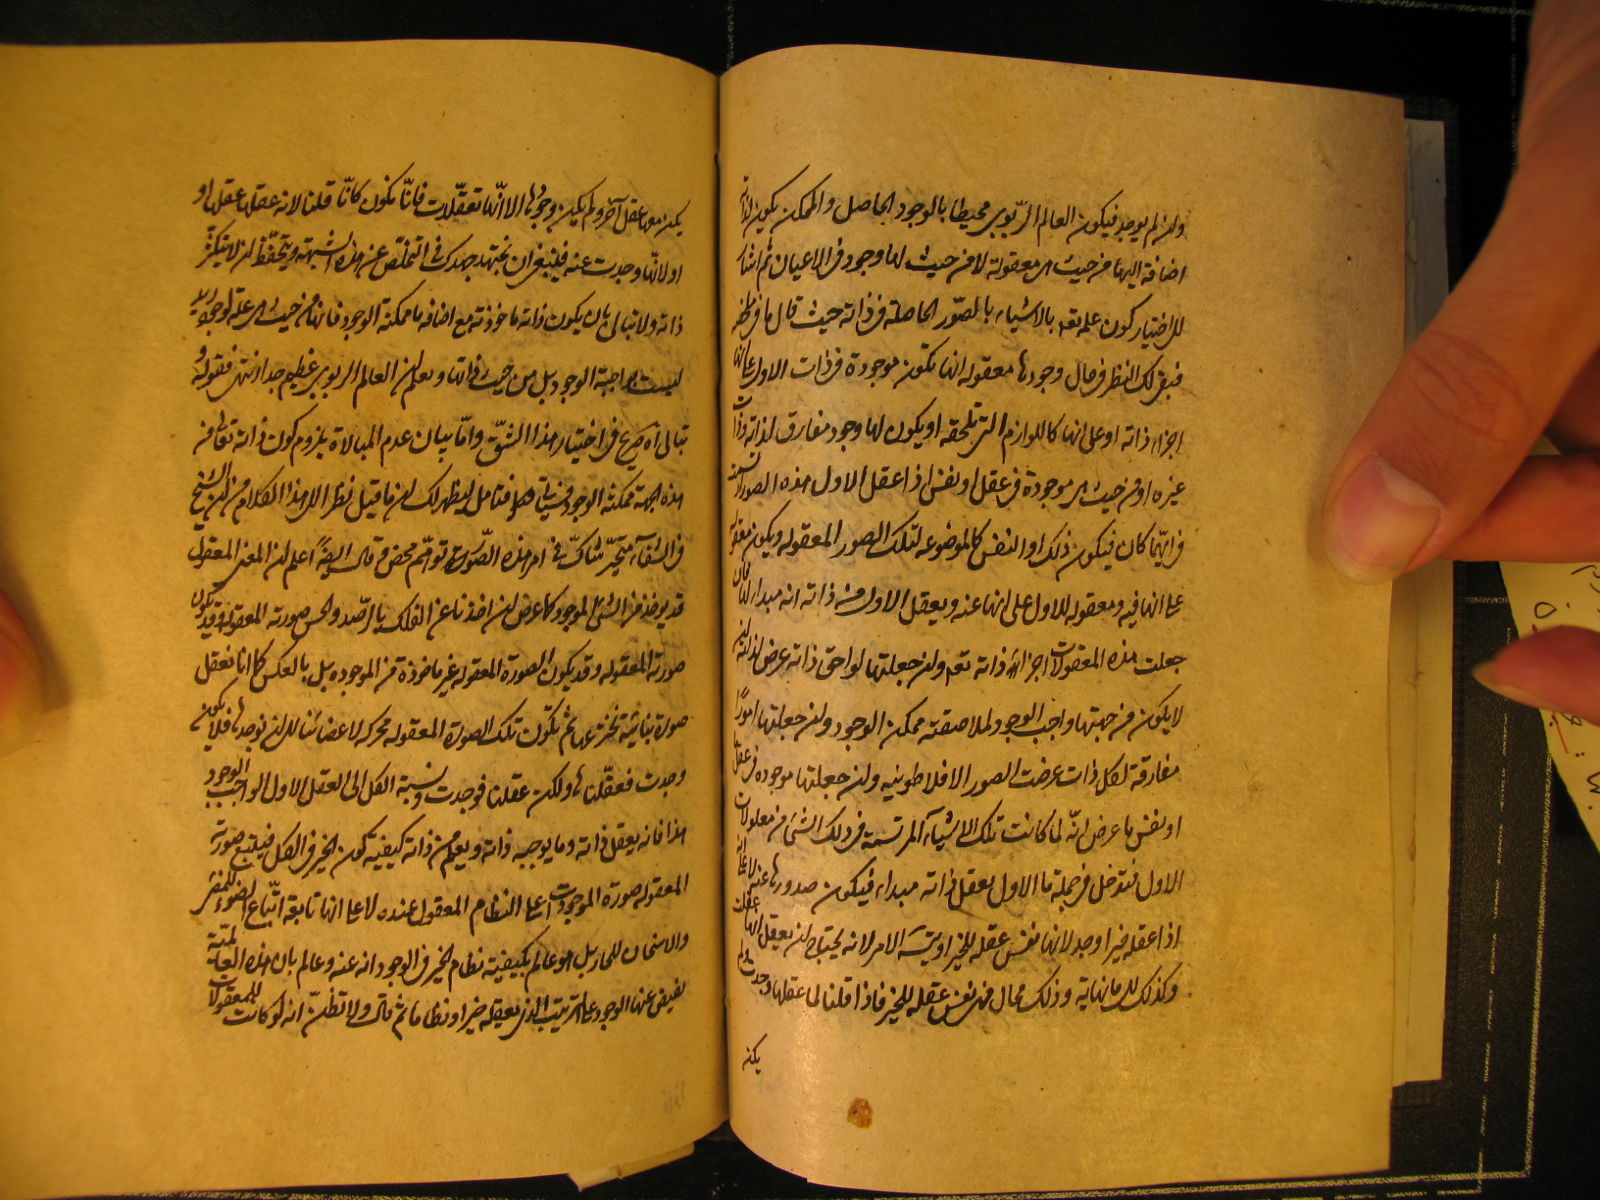 وان لم يوجد فيكون العالم الربوبى محيطا بالوجود الحاصل والممكن يكون لذاته
اضافة اليها من حيث هى معقولة لا من حيث لها وجود فى الاعيان ثم اشار
الى اختيار كون علمه تعه بالاشياء بالصّور الحاصلة فى ذاته حيث قال ما
فبقى لك النظر فى حال وجودها معقوله انها تكون موجودة فى ذات الاول على انها
اجزاء ذاته او على انها كاللوازم التى تلحقه او يكون لها وجود مفارق لذاته وذات
غيره او من حيث هى موجودة فى عقل او نفس اذا عقل الاول هذه الصور ارتسمت
فى ايّهما كان فيكون ذلك او النفس كالموضوعه لتلك الصور المعقوله ويكون معقوله
على انها فيه ومعقوله للاول على انها عنه ويعقل الاول من ذاته انه مبداء لها فان
جعلت هذه المعقولات اجزاء ذاته تعه وان جعلتها لواحق ذاته عرض لذاته ان
لا يكون من جهتها واجب الوجود لملاصقته ممكن الوجود وان جعلتها امورًا
مفارقة لكل ذات عرضت الصور الافلاطونيه وان جعلتها موجوده فى عقل
او نفس ما عرض انّه لما كانت تلك الاشياء المرتسمة فى ذلك الشئ من معلولات
الاول فتدخل فى جملة ما الاول يعقل ذاته مبداء فيكون صدورها عنه لا على انه
اذا عقله خيرا وجد لانها نفس عقله للخير او يتس الامر لانه يحتاج ان يعقل انها عقلت
وكذلك الى ما نهاية وذلك محال فهى نفس عقله للخير فاذا قلنا لما عقلها وجدت ولم
يكن
يكن معها عقل آخر ولم يكن وجودها الا انّها تعقّلات فانّا نكون كانّا قلنا لانه عقلها عقلها او
او لانّها وجدت عنه فينبغى ان تجتهد جهدك فى التخلّص عن هذه الشبهة وتتحفّظ ان لا يتكثّر
ذاته ولا تبالى بان يكون ذاته ماخوذة مع اضافه ما ممكنة الوجود فانها من حيث هى علة لوجود زيد
ليست بواجبة الوجود بل من حيث ذاتها وتعلم ان العالم الربوبى عظيم جدا انتهى فقوله و
تبالى اه صريح فى اختيار هذا الشقّ وامّا بيان عدم المبالاة بلزوم كون ذاته تعالى من
هذه الجهة ممكنة الوجود فسياتى فتامل ليظهر لك ان ما قيل نظرا الى هذا الكلام من ان الشيخ
فى الشفاء متحيّر شاكّ فى امر هذه الصّور توهّم محض وقال ايضًا اعلم ان المعنى المعقول
قد يوخذ من الشئ الموجود كما عرض ان اخذنا عن الفلك بالرّصد والحس صورته المعقوله وقد يكون
صورته المعقوله وقد يكون الصورة المعقوله غير ماخوذة من الموجوده بل بالعكس كما انا نعقل
صورة بنائية نخترعها ثم تكون تلك الصورة المعقوله محركه لاعضائنا الى ان نوجدها فلا يكون
وجدت فعقلناها ولكن عقلنا فوجدت ونسبة الكل الى العقل الاول الواجب الوجود
هذا فانه يعقل ذاته وما يوجبه ذاته ويعلم من ذاته كيفيّه كون الخير فى الكل فيتبع صورته
المعقوله صورة الموجودات على النظام المعقول عنده لا على انها تابعة اتّباع الضوء للمضئ
والاسخان للحار بل هو عالم بكيفيّة نظام الخير فى الوجود انه عنه وعالم بان هذه العالميّة
يفيض عنها الوجود على الترتيب الذى يعقله خيرا ونظاما ثم قال ولا تظنّ انه لو كانت للمعقولات